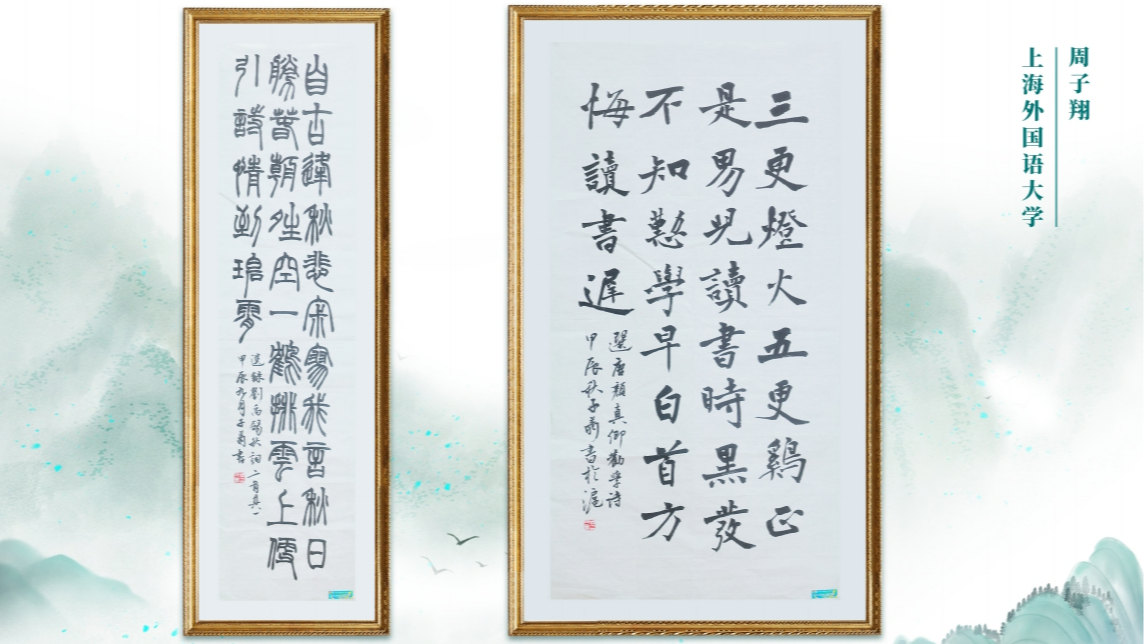 周子翔
上海外国语大学
三更燈火五更鷄正
是男兒讀書時黑發
不知懃學早白首方
悔讀書遲
選唐顏真卿勸學诗
甲辰秋子翔書於滬
自古逢秋悲寂寥我言秋日
勝春朝晴空一鶴排雲上便
引詩情到碧霄
选録劉禹錫秋詞二首其一
甲辰九月子翔書